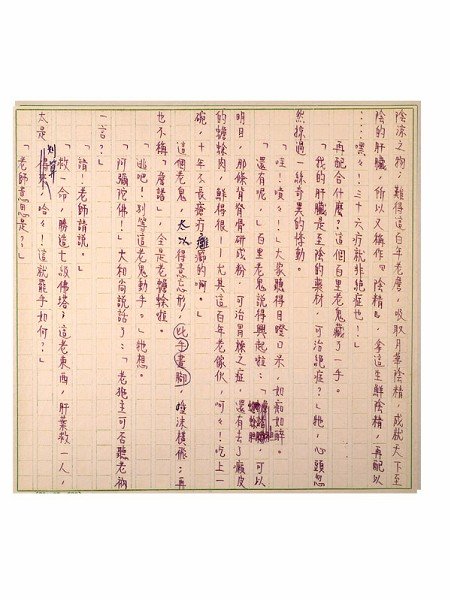 陰涼之物,難得這百年老蟾,吸取月華陰精,成就天下至
陰的肝臟,所以又稱作『陰精』,拿這生鮮陰精,再配以
‥‥嘿々!三十六疔就非絕症也!」
再配合什麼?這個百里老鬼藏了一手。
「我的肝臟是至陰的藥材,可治絕症?」牠,心頭忽
然掠過一絲奇異的悸動。
「哇!嘖々!」大家聽得目瞪口呆,如痴如醉。
「還有呢,」百里老鬼說得興起啦:「,可以
明目,那條背脊骨研成粉,可治胃燥之症,還有去了癩皮
的蟾蜍肉,鮮得很!——尤其這百年老傢伙,呵々!吃上一
碗,十年不長瘡疔的啊。」
這個老鬼,太以得意忘形,比手畫腳,唾沫橫飛;再
也不稱「詹諸」,全是老蟾蜍啦。
「逃吧!別等這老鬼動手。」牠想。
「阿彌陀佛!」大和尚說話了:「老施主可否聽老衲
一言?」
「請!老師請說。」
「救一命,勝造七級佛塔;這老東西,肝葉救一人,
太是划算,哈々!這就罷手如何?」
「老師意思是?」